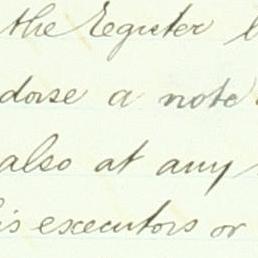 the Register
dorse a note
also at any
is executors or